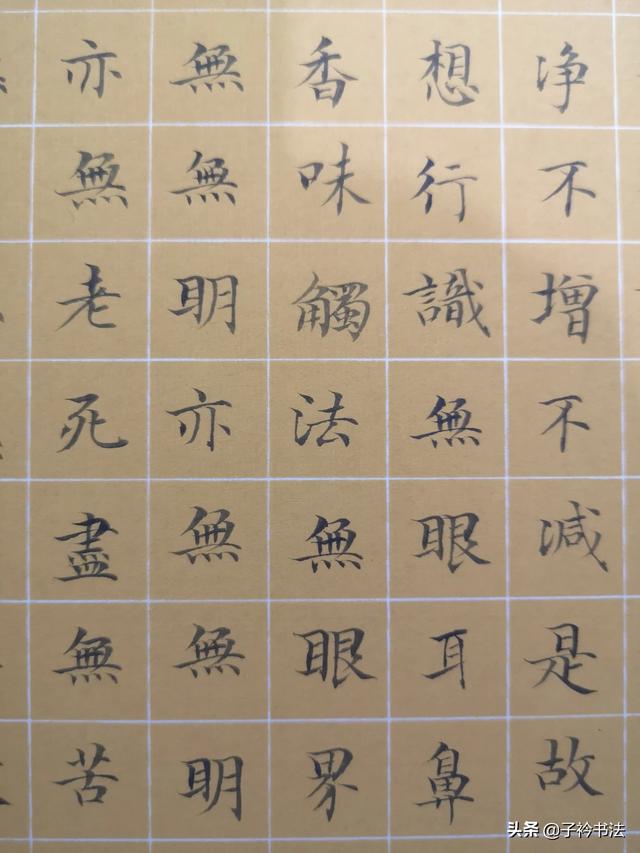 净不增不减是故
想行識無眼耳鼻
香味觸法無眼界
無無明亦無無明
亦無老死盡無苦
头条 @子衿书法